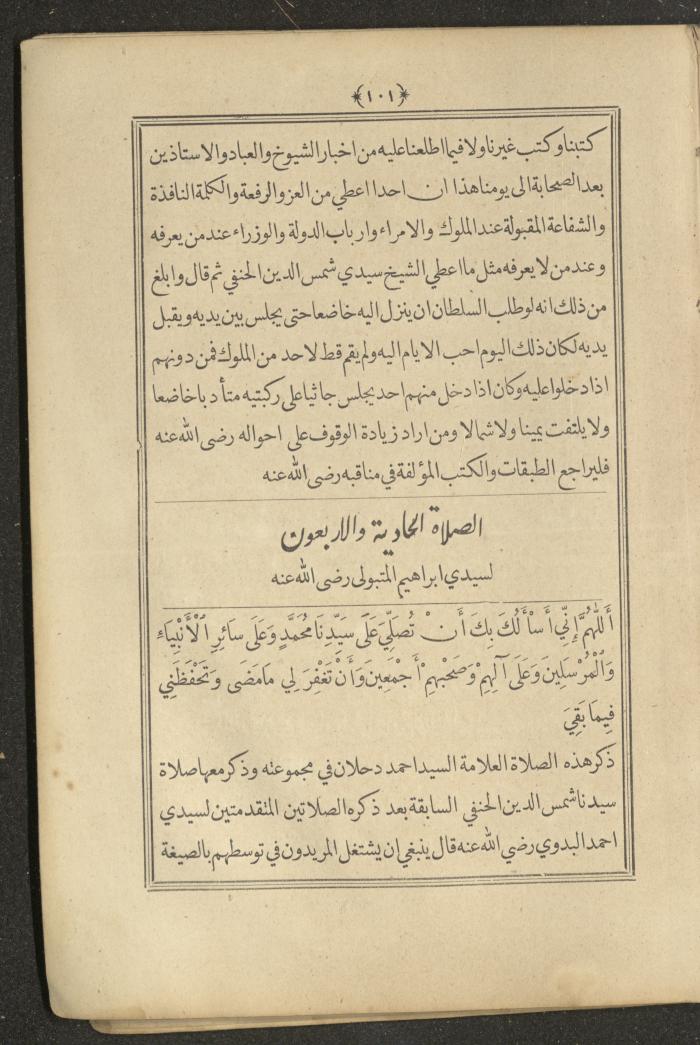 ﴿١٠١﴾
كتبنا وكتب غيرنا ولا فيما اطلعنا عليه من اخبار الشيوخ والعباد والاستاذين
بعد الصحابة الى يومنا هذا ان احدا اعطي من العز والرفعة والكلمة النافذة
والشفاعة المقبولة عند الملوك والامراء وارباب الدولة والوزراء عند من يعرفه
وعند من لا يعرفه مثل ما اعطي الشيخ سيدي شمس الدين الحنفي ثم قال وابلغ
من ذلك انه لو طلب السلطان ان ينزل اليه خاضعا حتى يجلس بين يديه ويقبل
يديه لكان ذلك اليوم احب الايام اليه ولم يقم قط لاحد من الملوك فمن دونهم
اذا دخلوا عليه وكان اذا دخل منهم احد يجلس جاثيا على ركبتيه متأدبا خاضعا
ولا يلتفت يمينا ولا شمالا ومن اراد زيادة الوقوف على احواله رضى الله عنه
فليراجع الطبقات والكتب المؤلفة في مناقبه رضى الله عنه
الصلاة الحادية والاربعون
لسيدي ابراهيم المتبولى رضى الله عنه
أَللّٰهُمَّ إِنِّي أَسْأَلُكَ بِكَ أَنْ تُصَلِّيَ عَلَى سَيِّدِنَا مُحَمَّدٍ وَعَلَى سَائِرِ الْأَنْبِيَاءِ
وَالْمُرْسَلِينَ وَعَلَى آلِهِمْ وَصَحْبِهِمْ أَجْمَعِينَ وَأَنْ تَغْفِرَ لِي مَا مَضَى وَتَحْفَظَنِي
فِيمَا بَقِيَ
ذكر هذه الصلاة العلامة السيد احمد دحلان في مجموعته وذكر معها صلاة
سيدنا شمس الدين الحنفي السابقة بعد ذكره الصلاتين المتقدمتين لسيدي
احمد البدوي رضي الله عنه قال ينبغي ان يشتغل المريدون في توسطهم بالصيغة